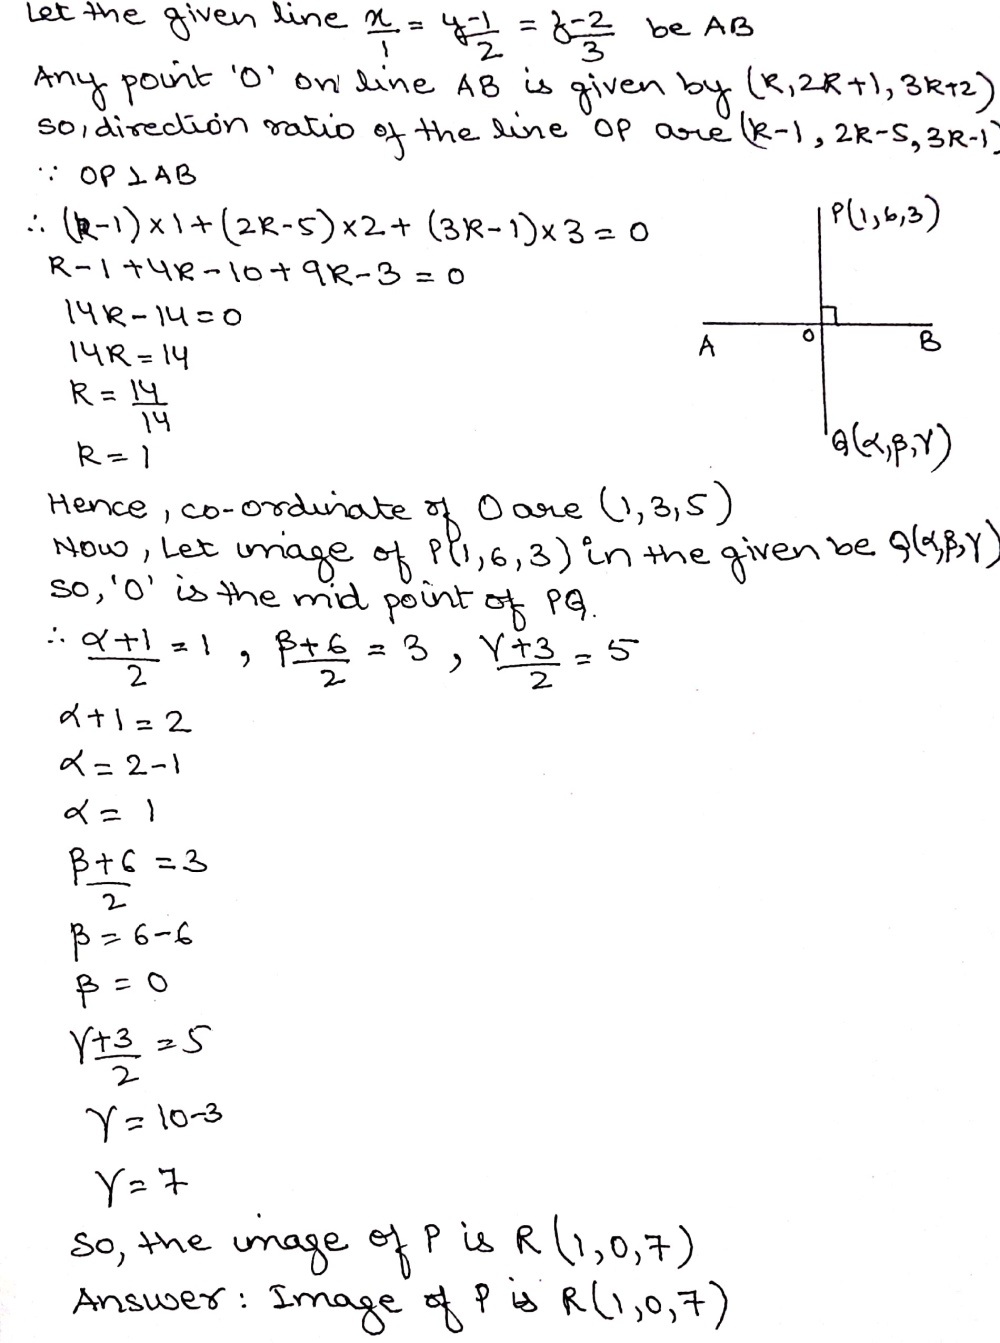 Let the given line x/1 = y-1/2 = z-2/3 be AB
Any point 'O' on line AB is given by (R, 2R+1, 3R+2)
so, direction ratio of the line OP are (R-1, 2R-5, 3R-1)
∵ OP ⊥ AB
∴ (R-1)×1+(2R-5)×2+(3R-1)×3=0
R-1+4R-10+9R-3=0
14R-14=0
14R=14
R=14/14
R=1
P(1,6,3)
A
O
B
Q(α,β,γ)
Hence, co-ordinate of O are (1,3,5)
Now, Let image of P(1,6,3) in the given be Q(α,β,γ)
so, 'O' is the mid point of PQ.
∴ α+1/2 = 1, β+6/2 = 3, γ+3/2 = 5
α+1=2
α=2-1
α=1
β+6/2 =3
β=6-6
β=0
γ+3/2 =5
γ=10-3
γ=7
So, the image of P is R(1,0,7)
Answer: Image of P is R(1,0,7)